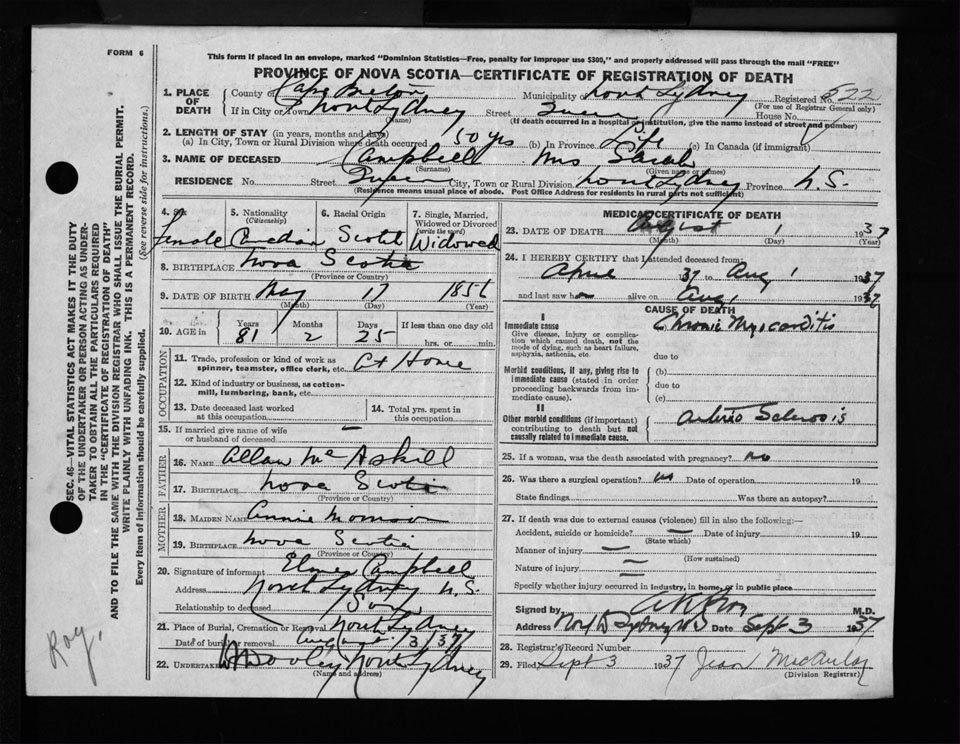 FORM 6
This form if placed in an envelope, marked "Dominion Statistics—Free, penalty for improper use $300," and properly addressed will pass through the mail "FREE"
PROVINCE OF NOVA SCOTIA—CERTIFICATE OF REGISTRATION OF DEATH
1. PLACE OF DEATH County of Cape Breton Municipality of North Sydney Registered No. 522
(For use of Registrar General only)
If in City or Town North Sydney Street House No.
(Name) (If death occurred in a hospital or institution, give the name instead of street and number)
2. LENGTH OF STAY (in years, months and days)
(a) In City, Town or Rural Division where death occurred 50 yrs (b) In Province Life (c) In Canada (if immigrant)
3. NAME OF DECEASED Campbell Mrs Sarah
(Surname) (Given name or names)
RESIDENCE No. Street City, Town or Rural Division North Sydney Province N.S.
(Residence means usual place of abode. Post Office Address for residents in rural parts not sufficient)
4. Sex Female
5. Nationality (Citizenship) Canadian
6. Racial Origin Scotch
7. Single, Married, Widowed or Divorced (write the word) Widowed
8. BIRTHPLACE Nova Scotia
(Province or Country)
9. DATE OF BIRTH May 17 1856
(Month) (Day) (Year)
10. AGE in Years Months Days If less than one day old
81 2 25 hrs. or min.
OCCUPATION
11. Trade, profession or kind of work as spinner, teamster, office clerk, etc. At Home
12. Kind of industry or business, as cotton-mill, lumbering, bank, etc.
13. Date deceased last worked at this occupation
14. Total yrs. spent in this occupation
15. If married give name of wife or husband of deceased —
FATHER
16. NAME Allan McAskill
17. BIRTHPLACE Nova Scotia
(Province or Country)
MOTHER
18. MAIDEN NAME Annie Morrison
19. BIRTHPLACE Nova Scotia
(Province or Country)
20. Signature of informant Elmer Campbell
Address North Sydney N.S.
Relationship to deceased Son
21. Place of Burial, Cremation or Removal North Sydney
Date of burial or removal August 3/37
22. Undertaker Dooley North Sydney
(Name and address)
MEDICAL CERTIFICATE OF DEATH
23. DATE OF DEATH August 1 1937
(Month) (Day) (Year)
24. I HEREBY CERTIFY that I attended deceased from:
April 37 to Aug 1 1937
and last saw h alive on Aug 1 1937
CAUSE OF DEATH
I
Immediate cause (a) Chronic Myocarditis
Give disease, injury or complication which caused death, not the mode of dying, such as heart failure, asphyxia, asthenia, etc.
due to
Morbid conditions, if any, giving rise to immediate cause (stated in order proceeding backwards from immediate cause).
(b)
due to
(c)
II
Other morbid conditions (if important) contributing to death but not causally related to immediate cause. Arterio Sclerosis
25. If a woman, was the death associated with pregnancy? no
26. Was there a surgical operation? no Date of operation 19
State findings Was there an autopsy?
27. If death was due to external causes (violence) fill in also the following:—
Accident, suicide or homicide? — Date of injury 19
(State which)
Manner of injury —
(How sustained)
Nature of injury —
Specify whether injury occurred in industry, in home, or in public place
Signed by M.D.
Address North Sydney NS Date Sept 3 1937
28. Registrar's Record Number
29. Filed Sept 3 1937 Jean MacAulay
(Division Registrar)
SEC. 46—VITAL STATISTICS ACT MAKES IT THE DUTY
OF THE UNDERTAKER OR PERSON ACTING AS UNDER-
TAKER TO OBTAIN ALL THE PARTICULARS REQUIRED
IN THE "CERTIFICATE OF REGISTRATION OF DEATH"
AND TO FILE THE SAME WITH THE DIVISION REGISTRAR WHO SHALL ISSUE THE BURIAL PERMIT.
WRITE PLAINLY WITH UNFADING INK. THIS IS A PERMANENT RECORD.
Every item of information should be carefully supplied. (See reverse side for instructions.)
Roy.